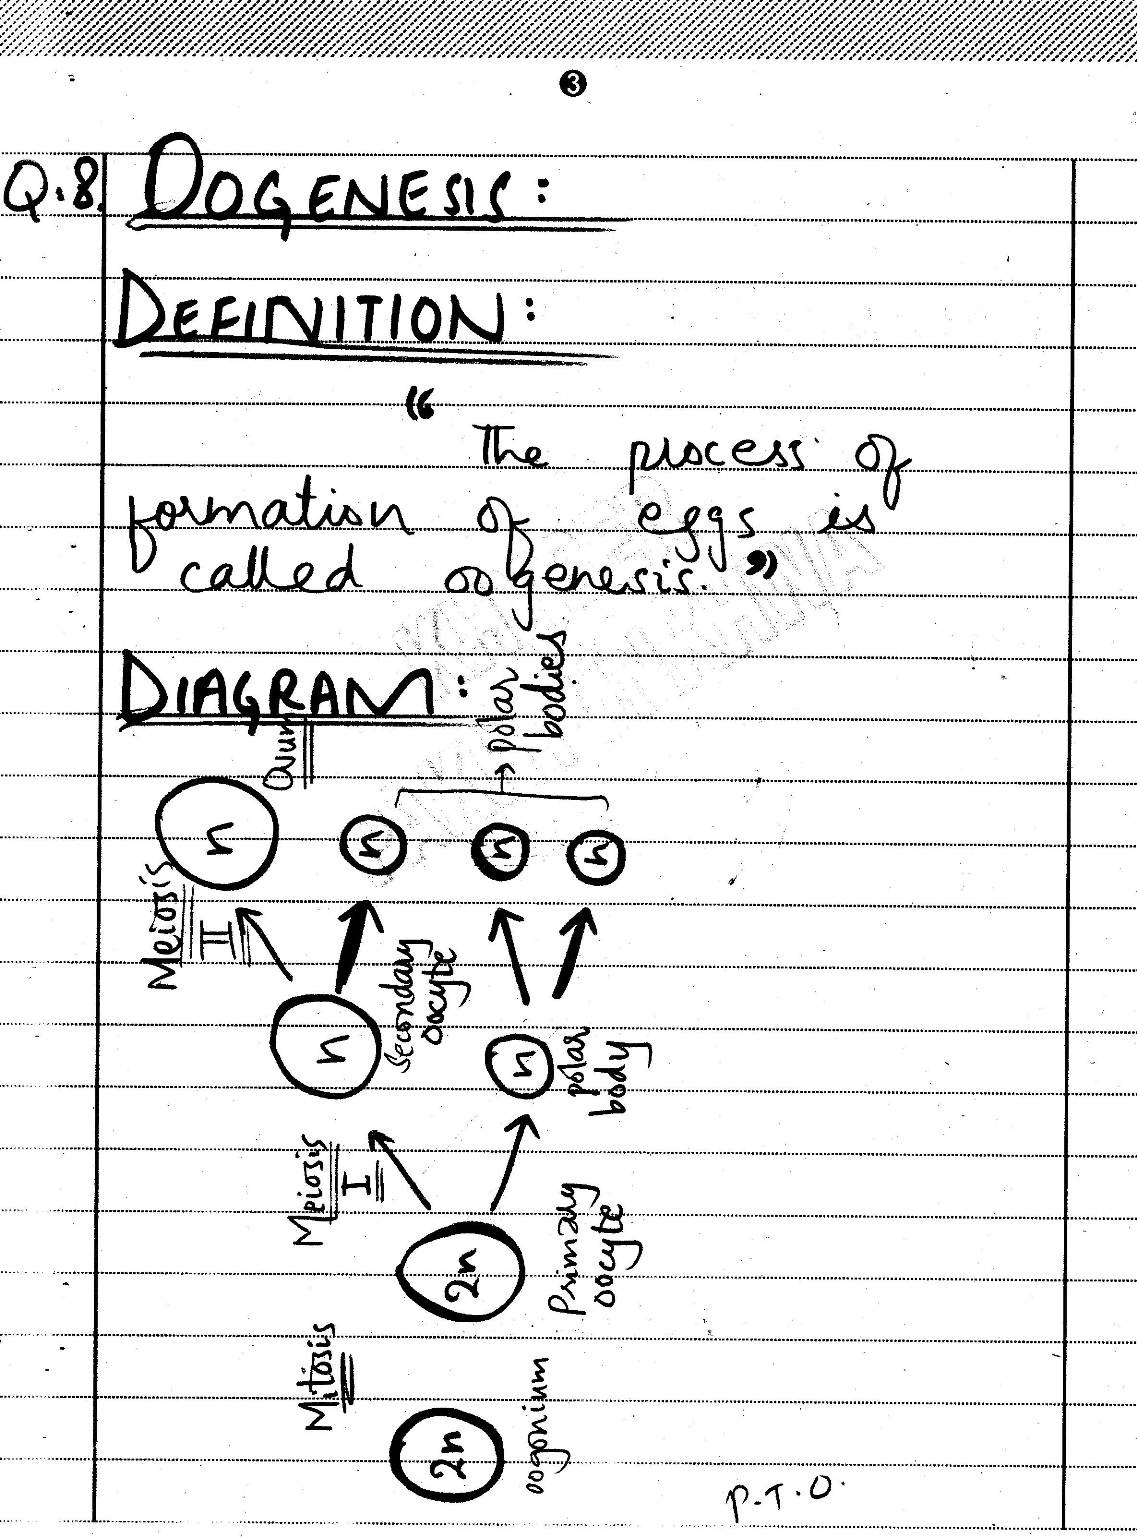 3
Q.8. OOGENESIS:
DEFINITION:
“
The process of
formation of eggs is
called oogenesis.”
DIAGRAM:
polar
bodies
Ovum
n
n
n
n
Meiosis
II
n
Secondary
oocyte
n
polar
body
Meiosis
I
2n
Primary
oocyte
Mitosis
2n
oogonium
P.T.O.